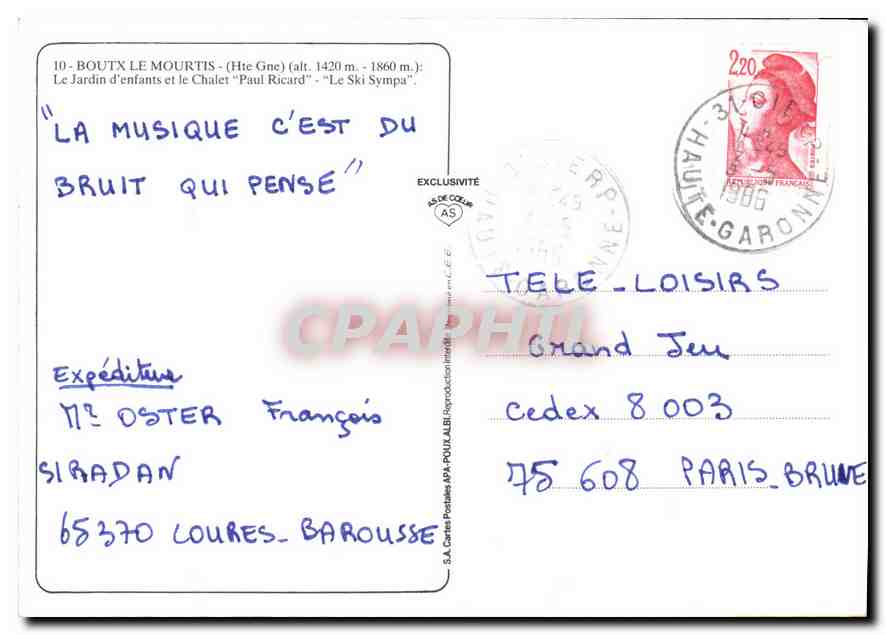 10 - BOUTX LE MOURTIS - (Hte Gne) (alt. 1420 m. - 1860 m.):
Le Jardin d'enfants et le Chalet "Paul Ricard" - "Le Ski Sympa".
"LA MUSIQUE C'EST DU
BRUIT QUI PENSE"
Expéditeur
Mr OSTER François
SIRADAN
65370 LOURES-BAROUSSE
EXCLUSIVITÉ
AS DE CŒUR
AS
S.A. Cartes Postales APA-POUX, ALBI. Reproduction interdite
CPAPHIL
2,20
REPUBLIQUE FRANÇAISE
1986
HAUTE-GARONNE
TELE-LOISIRS
Grand Jeu
Cedex 8 003
75 608 PARIS-BRUNE